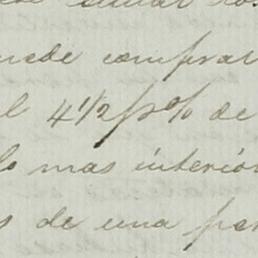 uede comprar
l 4 1/2 p% de
lo mas interior
s de una par